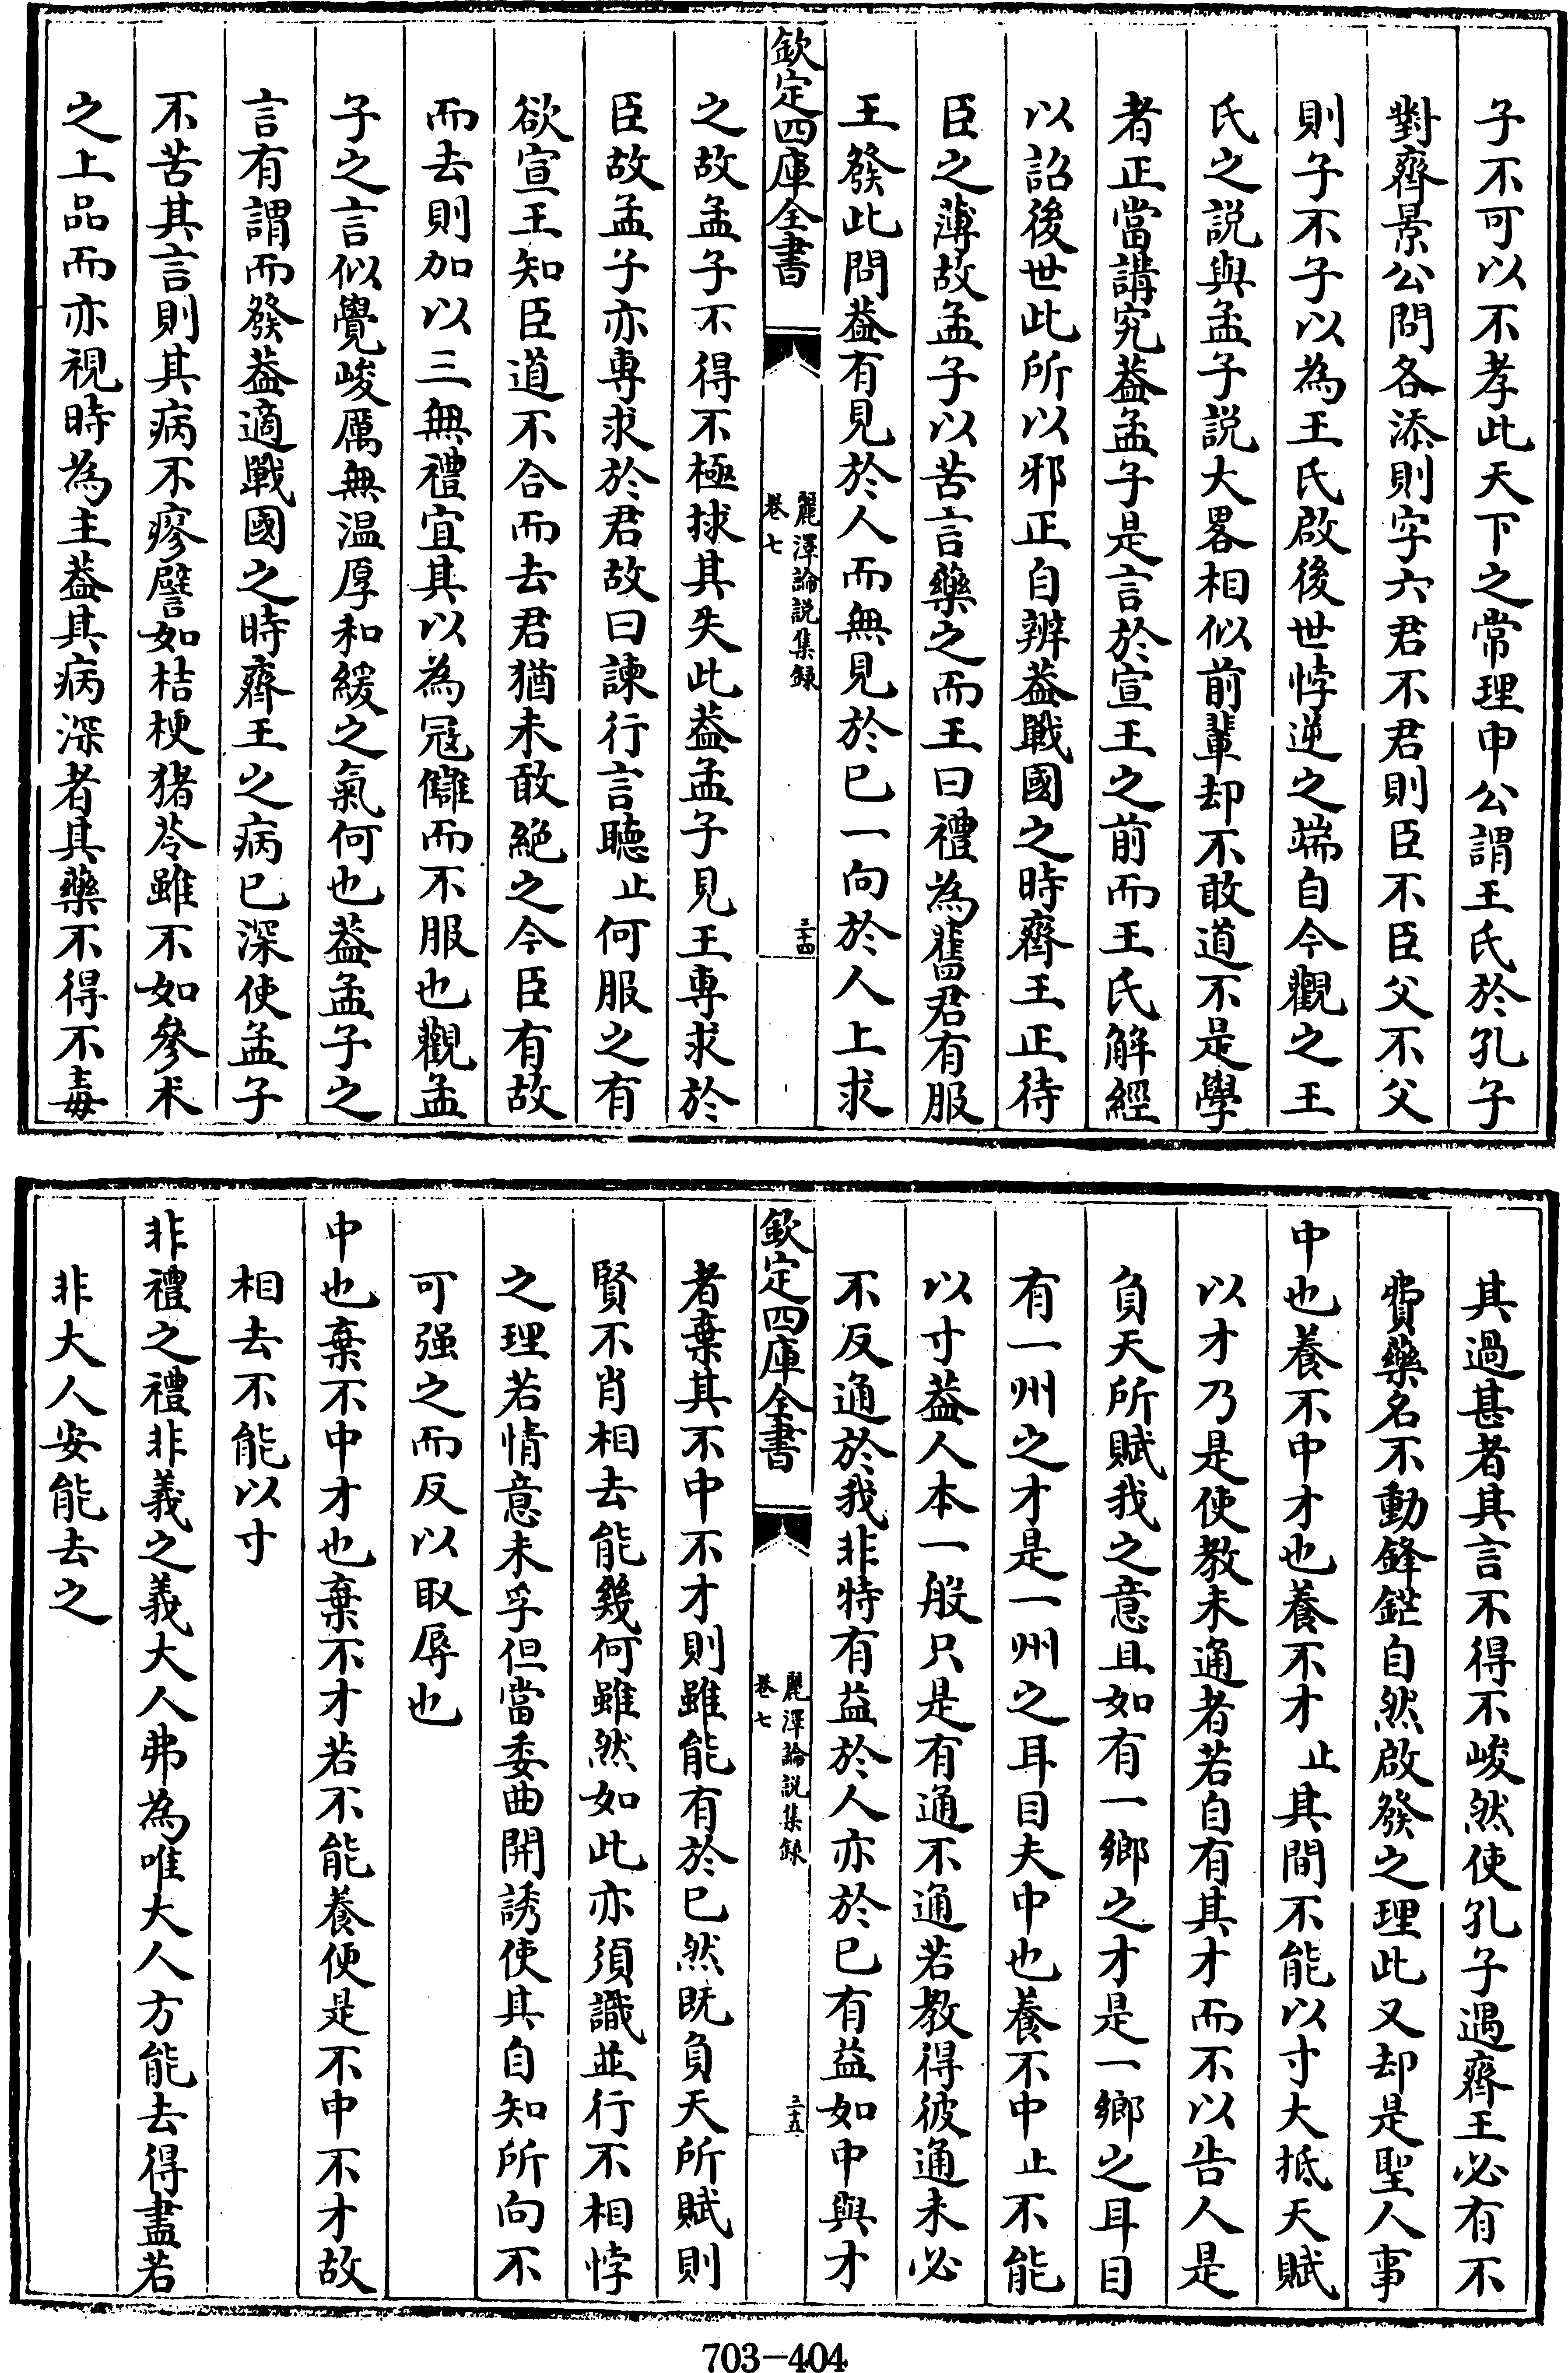 子不可以不孝此天下之常理申公謂王氏於孔子
對齊景公問各添則字六君不君則臣不臣父不父
則子不子以為王氏啟後世悖逆之端自今觀之王
氏之説與孟子説大畧相似前輩却不敢道不是學
者正當講究葢孟子是言於宣王之前而王氏解經
以詔後世此所以邪正自辨葢戰國之時齊王正待
臣之薄故孟子以苦言藥之而王曰禮為舊君有服
王發此問葢有見於人而無見於已一向於人上求
欽定四庫全書
麗澤論説集録
卷七
三十四
之故孟子不得不極捄其失此葢孟子見王専求於
臣故孟子亦専求於君故曰諫行言聽止何服之有
欲宣王知臣道不合而去君猶未敢絶之今臣有故
而去則加以三無禮宜其以為冦讎而不服也觀孟
子之言似覺峻厲無温厚和緩之氣何也葢孟子之
言有謂而發葢適戰國之時齊王之病已深使孟子
不苦其言則其病不瘳譬如桔梗猪苓雖不如參术
之上品而亦視時為主葢其病深者其藥不得不毒
其過甚者其言不得不峻然使孔子遇齊王必有不
費藥名不動鋒鋩自然啟發之理此又却是聖人事
中也養不中才也養不才止其間不能以寸大抵天賦
以才乃是使教未通者若自有其才而不以告人是
負天所賦我之意且如有一鄉之才是一鄉之耳目
有一州之才是一州之耳目夫中也養不中止不能
以寸葢人本一般只是有通不通若教得彼通未必
不反通於我非特有益於人亦於已有益如中與才
欽定四庫全書
麗澤論説集録
卷七
三十五
者棄其不中不才則雖能有於已然既負天所賦則
賢不肖相去能幾何雖然如此亦須識並行不相悖
之理若情意未孚但當委曲開誘使其自知所向不
可强之而反以取辱也
中也棄不中才也棄不才若不能養便是不中不才故
相去不能以寸
非禮之禮非義之義大人弗為唯大人方能去得盡若
非大人安能去之
703-404